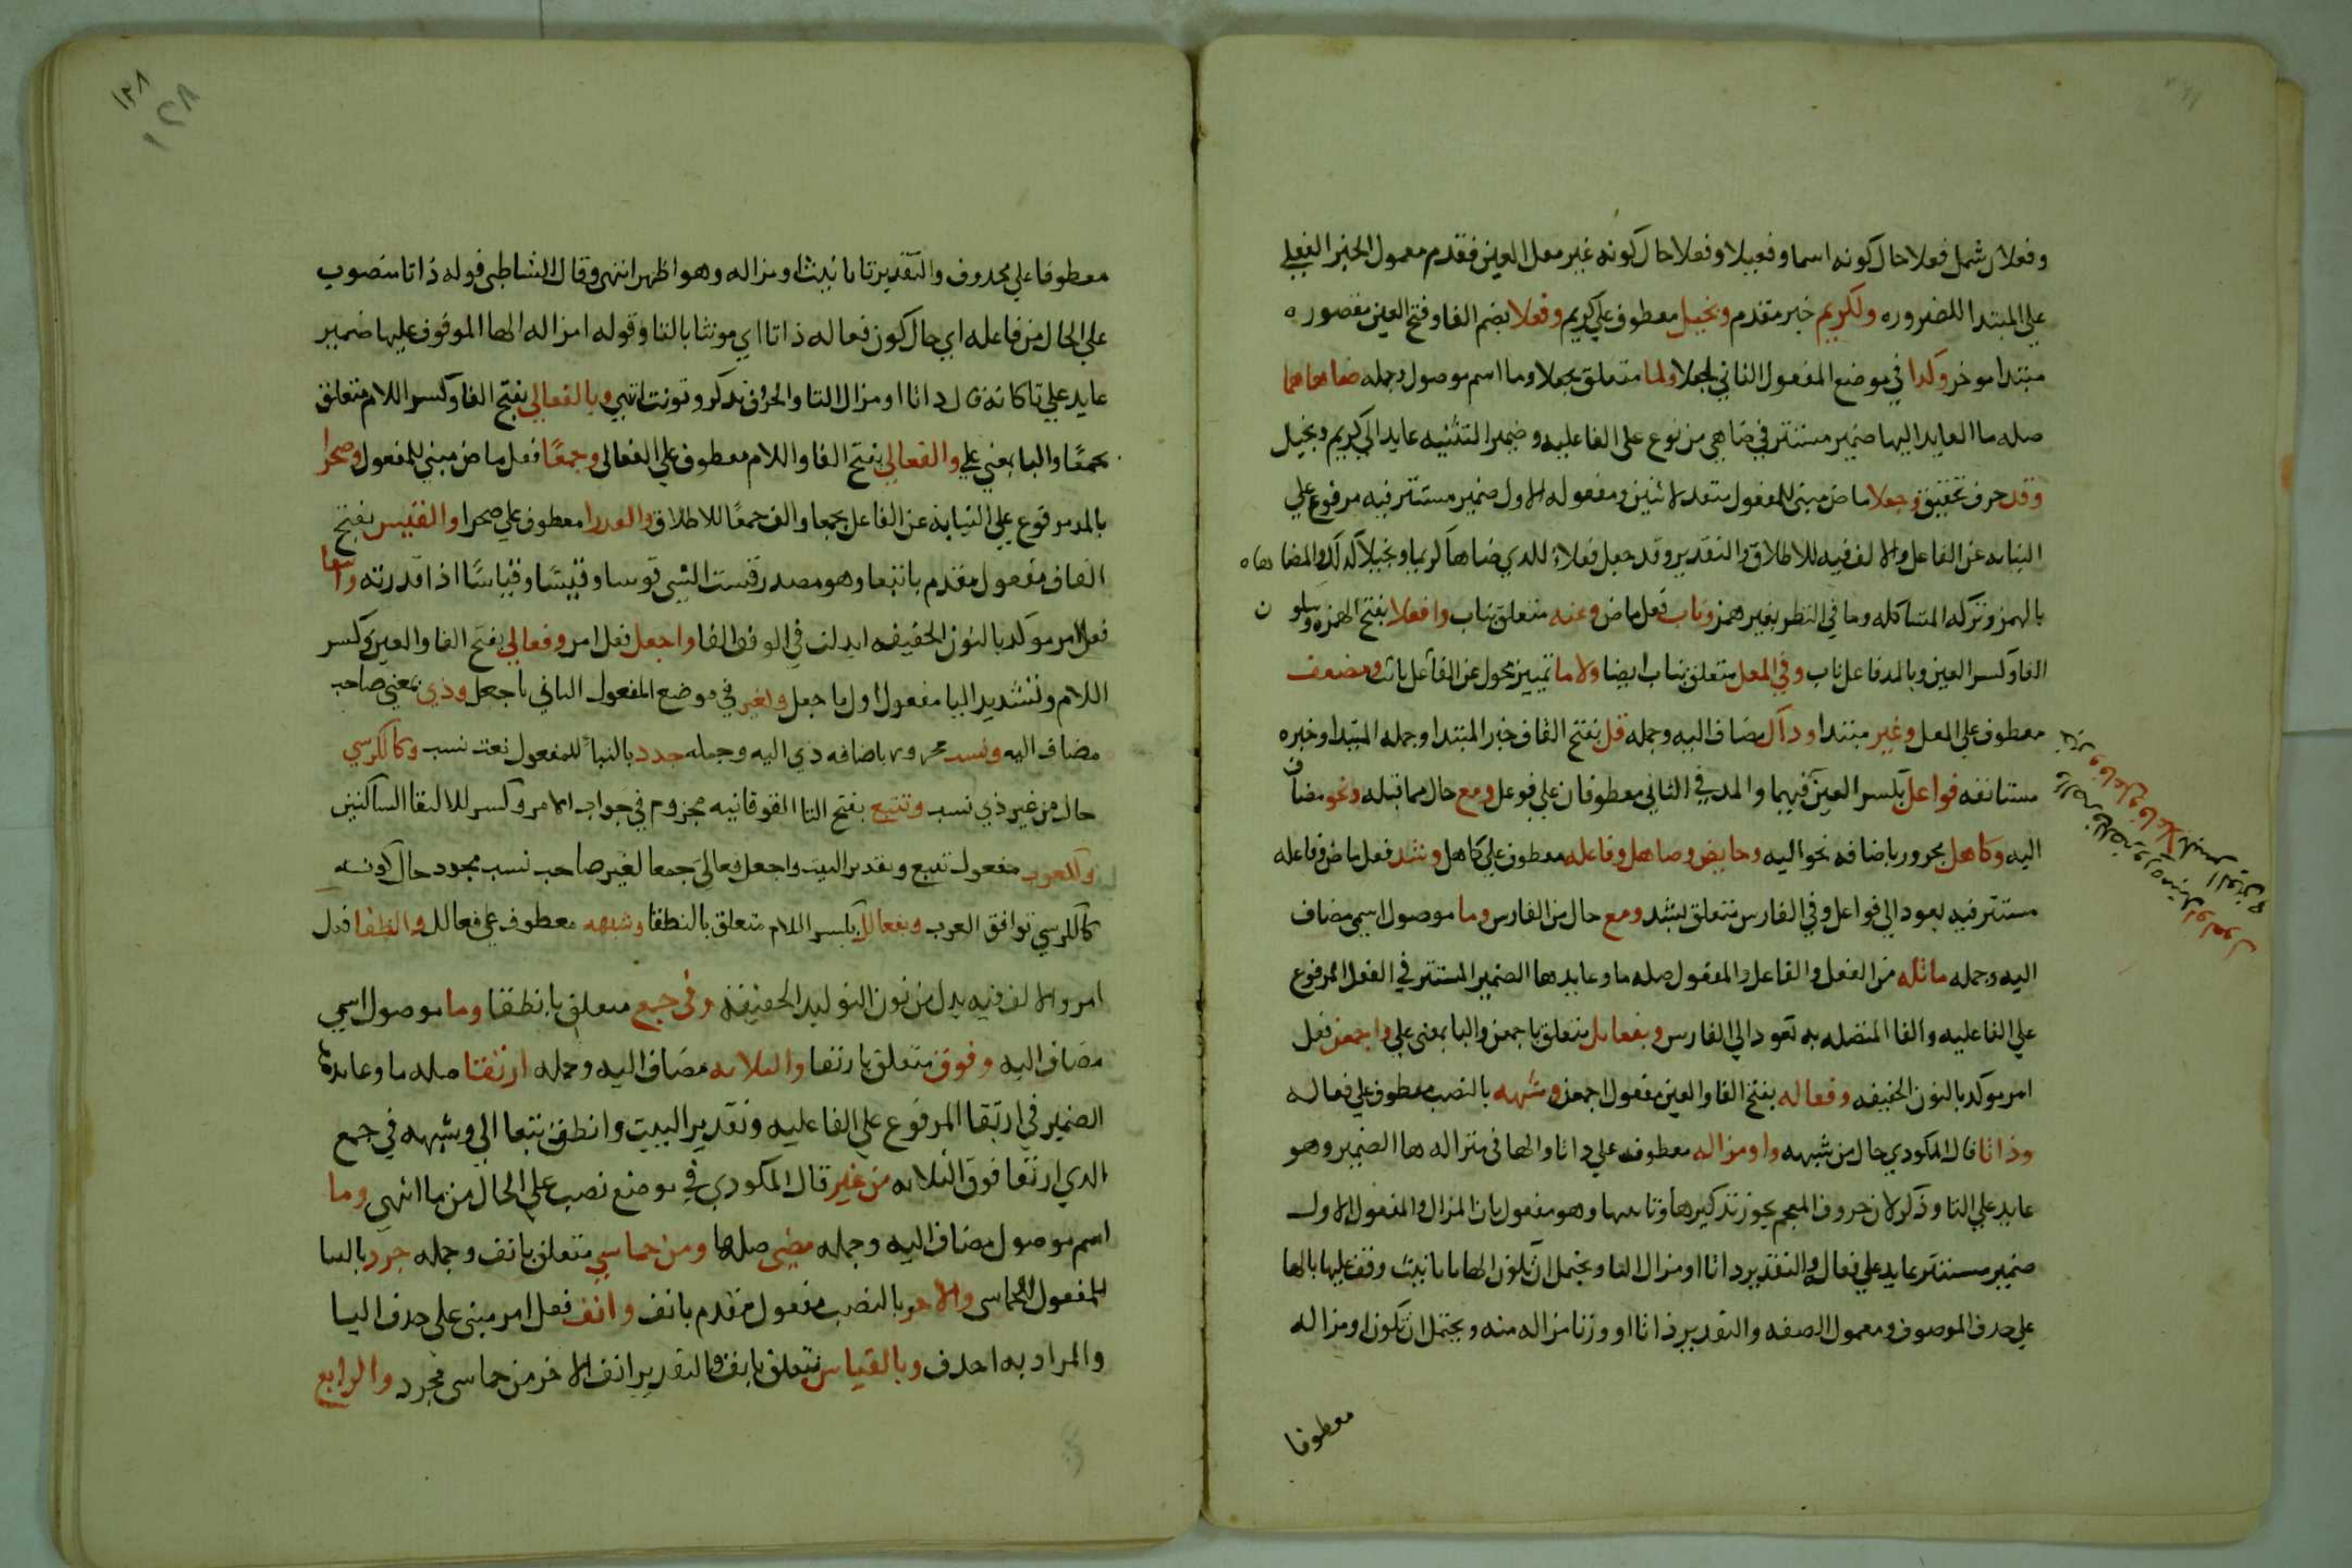 وفعلان شمل فعلا حال كونه اسما وفعيلا وفعلا حال كونه غير معل العين فقدم معمول الخبر الفعلي
علي المبتدا للضروره ولكريم خبر مقدم وبخيل معطوف علي كريم وفعلا بضم الفا وفتح العين مقصوره
مبتدا موخر وكدا في موضع المفعول الثاني لجعلا ولما متعلق بجعلا وما اسم موصول وجمله ضاهاهما
صله ما العايد اليها ضمير مستتر في ضاهي مرفوع على الفاعليه وضمير التثنيه عايد الي كريم وبخيل
وقد حرف تحقيق وجعلا ماض مبني للمفعول متعد لاثنين ومفعوله الاول ضمير مستتر فيه مرفوع علي
النيابه عن الفاعل والالف فيه للاطلاق والتقدير وقد جعل فعلاء للدي ضاها كريما وبخيلا كدلك والمضاهاه
بالهمز وتركه المشاكله وما في النظم بغير همز وناب فعل ماض وعنه متعلق بناب وافعلا بفتح الهمزه وسكون
الفا وكسر العين وبالمد فاعل ناب وفي المعل متعلق بناب ايضا ولاما تمييز محول عن الفاعل باثه ومضعف
معطوف علي المعل وغير مبتدا وداك مضاف اليه وجمله قل بفتح القاف خبر المبتدا وجمله المبتدا وخبره
مستانفه فواعل بكسر العين فيهما والمد في الثاني معطوفان علي فوعل ومع حال مما قبله ونحو مضاف
اليه وكاهل مجرور باضافه نحو اليه وحايض وصاهل وفاعله معطوف علي كاهل وشد فعل ماض وفاعله
مستتر فيه يعود الي فواعل وفي الفارس متعلق بشد ومع حال من الفارس وما موصول اسمي مضاف
اليه وجمله ماثله من الفعل والفاعل والمفعول صله ما وعايدها الضمير المستتر في الفعل المرفوع
علي الفاعليه والها المتصله به تعود الي الفارس وبفعايل متعلق باجمعن والبا بمعنى علي واجمعن فعل
امر موكد بالنون الخفيفه وفعاله بفتح الفا والعين مفعول اجمعن وشبهه بالنصب معطوف علي فعاله
وذا تا قال المكودي حال من شبهه واومزاله معطوف علي دا تا والها في مزاله ها الضمير وهو
عايد علي التا وذكر لان حروف المعجم يجوز تذكيرها وتانيثها وهو مفعول بان المزال والمفعول الاول
ضمير مستتر عايد علي فعال والتقدير دا تا او مزال التا ويحتمل ان تكون الها تا تانيث وقف عليها بالها
علي حدف الموصوف ومعمول الصفه والتقدير ذا تا او وزنا مزاله منه ويحتمل ان تكون او مزاله
معطوفا
١٣٨
١٢٨
معطوفا علي محدوف والتقدير تا تانيث او مزاله وهو اظهر انتهى وقال الشاطبي قوله ذا تا منصوب
علي الحال من فاعله اي حال كون فعاله ذا تا اي مونثا بالتا وقوله او مزاله الها الموقوف عليها ضمير
عايد علي تا كانه قال دا تا او مزال التا والحرف يدكر ويونث انتهي وبالفعالي بفتح الفا وكسر اللام متعلق
بجمعا والبا بمعني علي والفعالي بفتح الفا واللام معطوف علي الفعالي وجمعا فعل ماض مبني للمفعول وصحرا
بالمد مرفوع علي النيابه عن الفاعل بجمعا والف جمعا للاطلاق والعدرا معطوف علي صحرا والقيس بفتح
القاف مفعول مقدم باتبعا وهو مصدر قست الشي قوسا وقيسا وقياسا اذا قدرته واتبعا
فعل امر موكد بالنون الخفيفه ابدلت في الوقف الفا واجعل فعل امر وفعالي بفتح الفا والعين وكسر
اللام وتشديد اليا مفعول اول باجعل ولغير في موضع المفعول الثاني باجعل وذي بمعني صاحب
مضاف اليه ونسب مجرور باضافه ذي اليه وجمله جدد بالبنا للمفعول نعت نسب وكالكرسي
حال من غير ذي نسب وتتبع بفتح التا الفوقانيه مجزوم في جواب الامر وكسر للالتقا الساكنين
والعرب مفعول تتبع وتقدير البيت واجعل فعالي جمعا لغير صاحب نسب مجدد حال كونه
كالكرسي توافق العرب وبفعالل بكسر اللام متعلق بانطقا وشبهه معطوف علي فعالل وانطقا فعل
امر والالف فيه بدل من نون التوكيد الخفيفة وفي جمع متعلق بانطقا وما موصول اسمي
مضاف اليه وفوق متعلق بارتقا والثلاثه مضاف اليه وجمله ارتقا صله ما وعايدها
الضمير في ارتقا المرفوع علي الفاعليه وتقدير البيت وانطقن بفعالل وشبهه في جمع
الدي ارتقا فوق الثلاثه من غير قال المكودي في موضع نصب علي الحال من ما انتهى وما
اسم موصول مضاف اليه وجمله مضى صلها ومن خماسي متعلق بانف وجمله جرد بالبنا
للمفعول الخماسي والاخر بالنصب مفعول مقدم بانف وانف فعل امر مبنى على حدف اليا
والمراد به احدف وبالقياس متعلق بانف والتقدير انف الاخر من خماسى مجرد والرابع